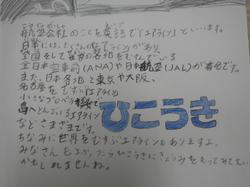 航空会社のことを英語で「エアライン」と、います。
日本には、たくさんのエアラインがあり、
全国そして世界の各地をむすんでいる
全日本空輸(ANA)や日本航空(JAL)が有名です。
また、日本各地と東京や大阪、
名古屋をむすぶエアライン
小さなプロペラ
島へとんでいるエアライン
などさまざまです。
ちなみに世界をむすぶエアラインもありますよ。
みなさんも よかったらひこうきにきょうみをもってみて
かもしれませんね。
ひこうき